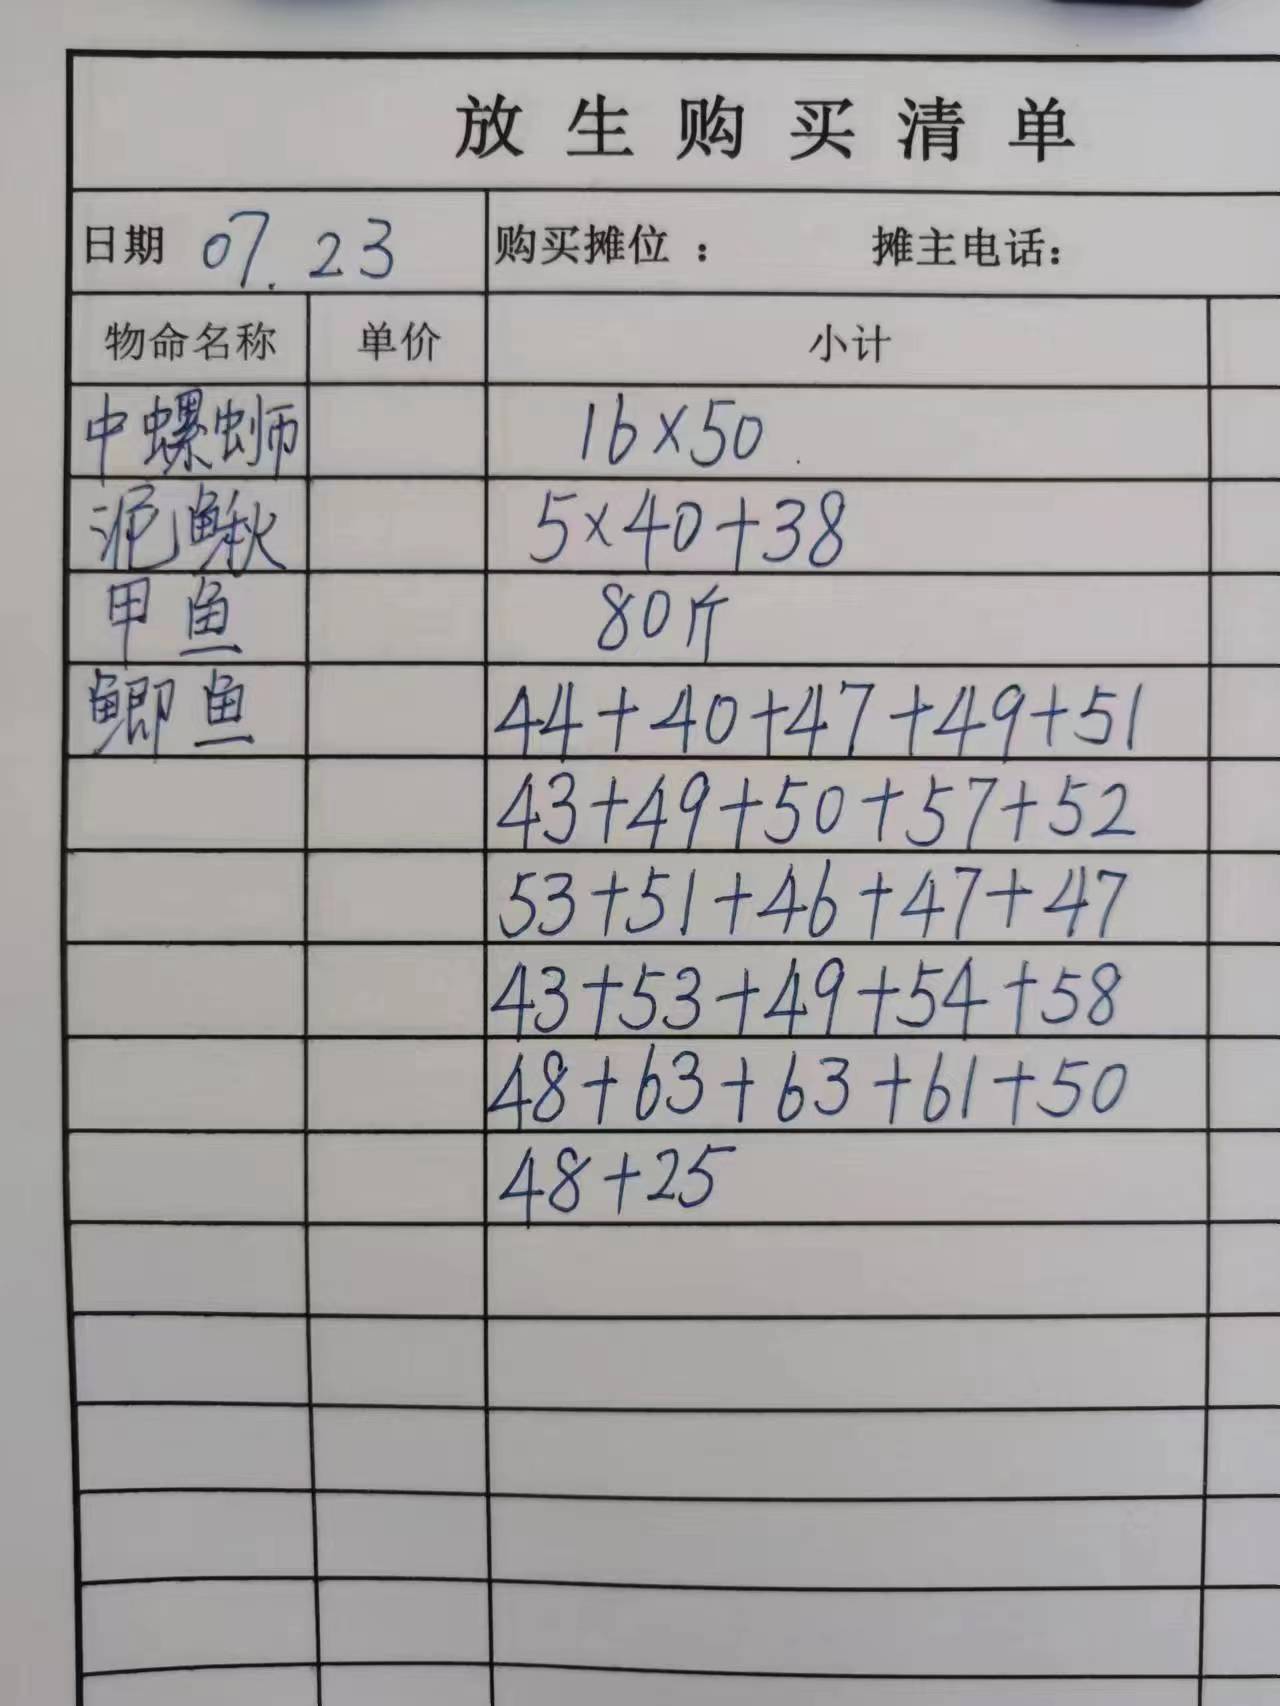 放生购买清单
日期 07.23 购买摊位： 摊主电话：
物命名称 单价 小计
中螺蛳 16×50
泥鳅 5×40+38
甲鱼 80斤
鲫鱼 44+40+47+49+51
43+49+50+57+52
53+51+46+47+47
43+53+49+54+58
48+63+63+61+50
48+25